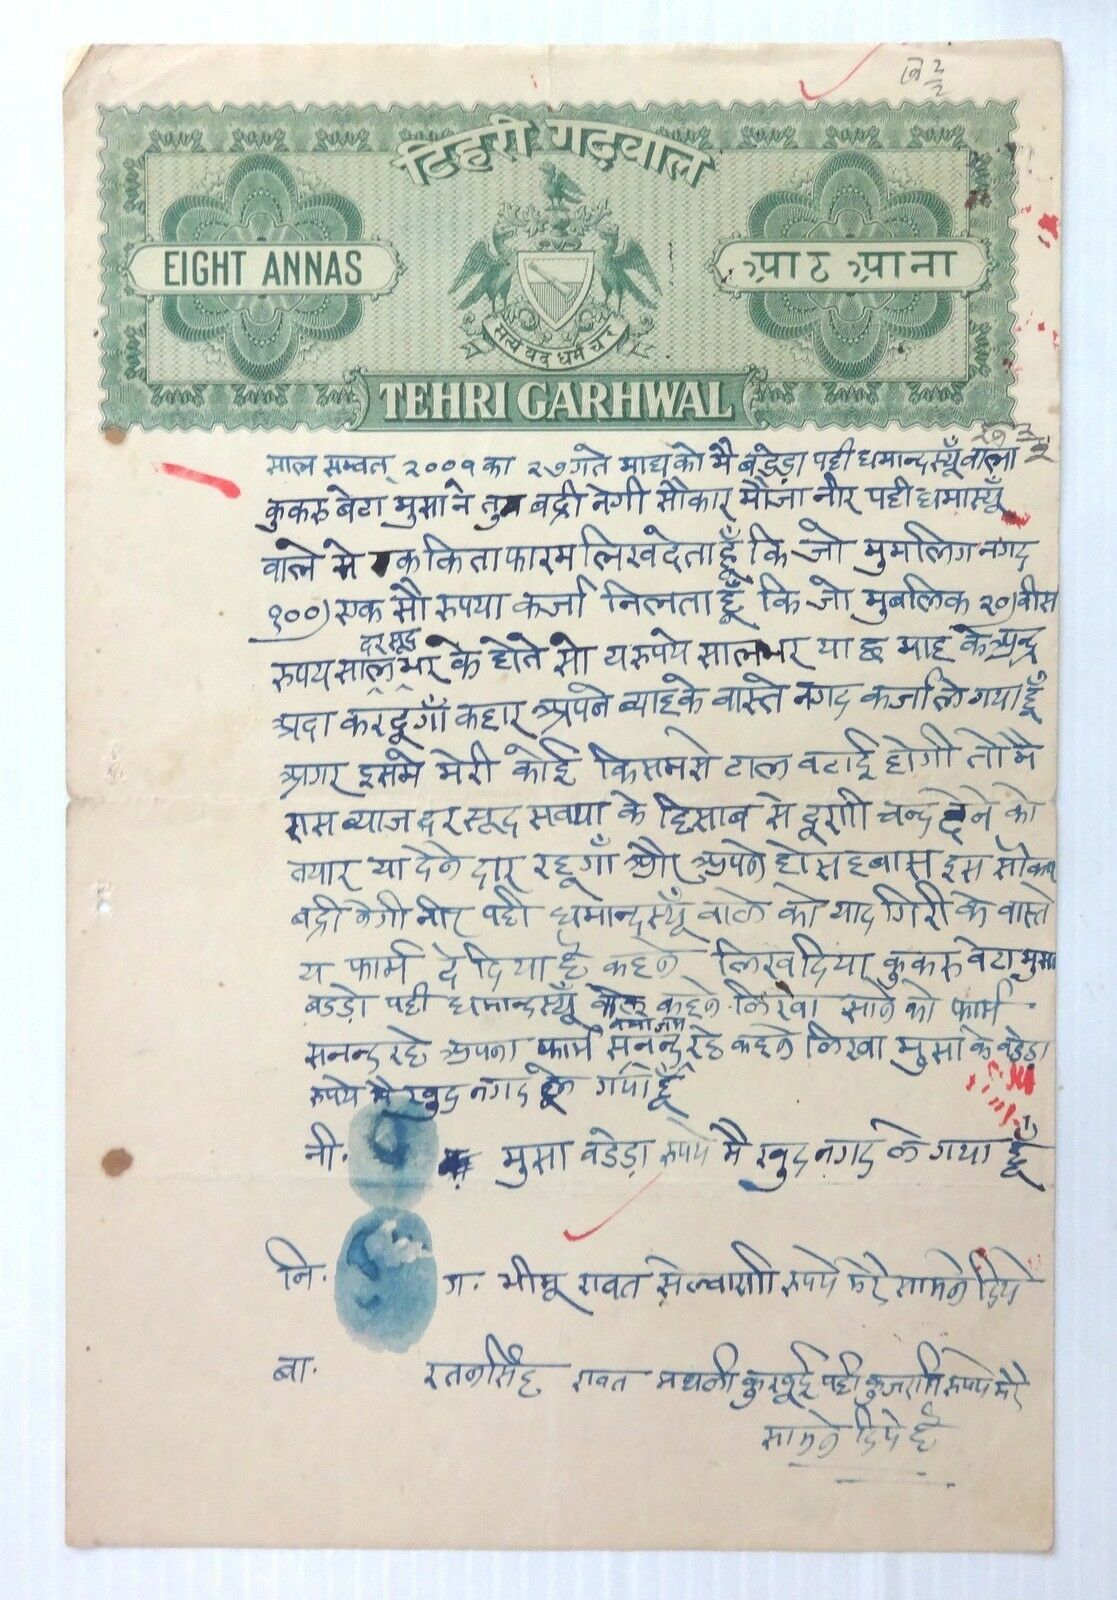 टिहरी गढ़वाल
EIGHT ANNAS
आठ आना
सत्यं वद धर्मं चर
TEHRI GARHWAL
साल सम्वत् २००१ का २७ गते माघ को मै बडेड़ा पट्टी धमान्दस्यूँ वाला
कुकरु बेटा मुसा ने तुम बद्री नेगी सौकार मौजा नीर पट्टी धमास्यूँ
वाले से एक किता फारम लिख देता हूँ कि जो मुमलिग नगद
१००) एक सौ रुपया कर्जा निलता हूँ कि जो मुबलिक २०) बीस
दर सूद
रुपय साल भर के होते सो य रुपये साल भर या छ माह के अन्द्र
अदा कर दूगाँ कहार अपने ब्याह के वास्ते नगद कर्जा ले गया हूँ
अगर इसमे मेरी कोई किसम से टाल बटाई होगी तो मै
रास ब्याज दर सूद सवाया के हिसाब से चन्द देने को
तयार या देने दार रहूगाँ और अपने होस हवास इस सौकार
बद्री नेगी नीर पट्टी धमान्दस्यूँ वाले को यादगिरी के वास्ते
य फार्म दे दिया है कहने लिख दिया कुकरु बेटा मुसा
बडेड़ा पट्टी धमान्दस्यूँ वाले कहने लिखा सौने को फार्म
सनन्द रहे अपना फार्म सनन्द रहे कहने लिखा मुसा के बडेड़ा
रुपये मै खुद नगद ले गया हूँ
नी. मुसा बडेड़ा रुपये मै खुद नगद ले गया हूँ
नि. ग. भीमू रावत सेल्वाणी रुपये मेरे सामने दिये
बा. रतनसिंह रावत पट्टी कुजणी रुपये मेरे
सामने दिये है